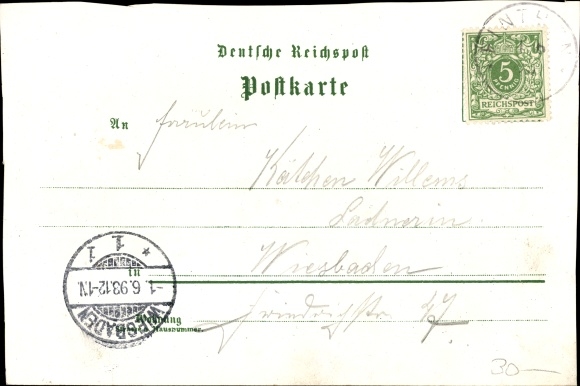 Deutsche Reichspost
Postkarte
5
PFENNIG
REICHSPOST
An Fräulein
Kätchen Willems
Ladnerin
in Wiesbaden
Wohnung
Friedrichstr. 47
1
1 *
-1.6.93.12-1N
WIESBADEN
30—